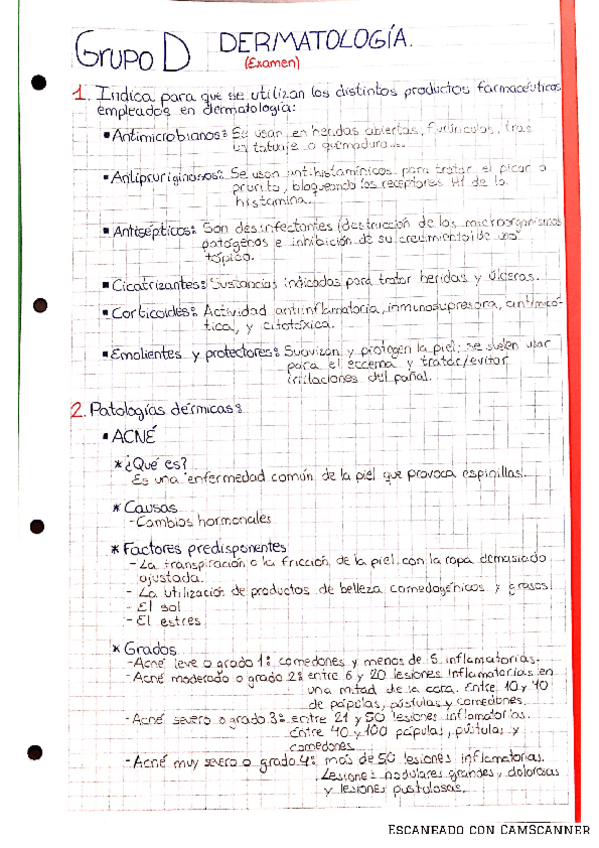 GRUPO D DERMATOLOGÍA.
(Examen)
1. Indica para qué se utilizan los distintos productos farmacéuticos
empleados en dermatología:
▪ Antimicrobianos: Se usan en heridas abiertas, furúnculos, tras
un tatuaje o quemadura...
▪ Antipruriginosos: Se usan antihistamínicos para tratar el picor o
prurito, bloqueando los receptores H1 de la
histamina.
▪ Antisépticos: Son desinfectantes (destrucción de los microorganismos
patógenos e inhibición de su crecimiento) de uso
tópico.
▪ Cicatrizantes: Sustancias indicadas para tratar heridas y úlceras.
▪ Corticoides: Actividad antiinflamatoria, inmunosupresora, antimicó-
tica, y citotóxica.
▪ Emolientes y protectores: Suavizan y protegen la piel; se suelen usar
para el eccema y tratar/evitar
irritaciones del pañal.
2. Patologías dérmicas:
▪ ACNÉ
* ¿Qué es?
Es una enfermedad común de la piel que provoca espinillas.
* Causas
- Cambios hormonales
* Factores predisponentes
- La transpiración o la fricción de la piel con la ropa demasiado
ajustada.
- La utilización de productos de belleza comedogénicos y grasos
- El sol
- El estres
* Grados
- Acné leve o grado 1: comedones y menos de 5 inflamatorias.
- Acné moderado o grado 2: entre 6 y 20 lesiones inflamatorias en
una mitad de la cara. Entre 10 y 40
de pápulas, pústulas y comedones.
- Acné severo o grado 3: entre 21 y 50 lesiones inflamatorias.
Entre 40 y 100 pápulas, pústulas y
comedones
- Acné muy severo o grado 4: más de 50 lesiones inflamatorias.
Lesiones nodulares grandes y dolorosas
y lesiones pustulosas.
ESCANEADO CON CAMSCANNER